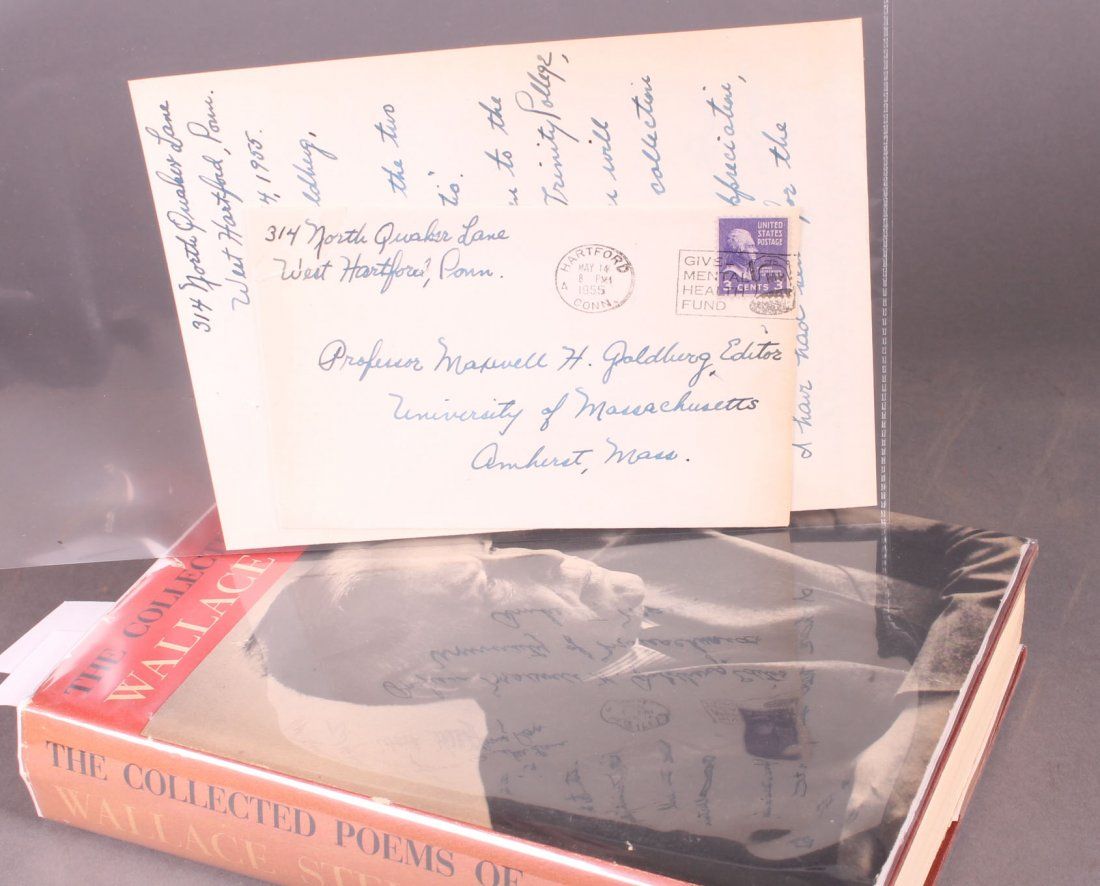 314 North Quaker Lane
West Hartford, Conn.
1955.
ldberg,
the two
to the
Trinity College,
will
collection
appreciation,
for the
I have had
314 North Quaker Lane
West Hartford, Conn.
HARTFORD
CONN.
MAY 14
8 PM
1955
GIVE
MENTAL
HEALTH
FUND
UNITED
STATES
POSTAGE
3 CENTS 3
Professor Maxwell H. Goldberg, Editor
University of Massachusetts
Amherst, Mass.
THE COLLEC
WALLACE
THE COLLECTED POEMS OF
WALLACE STE